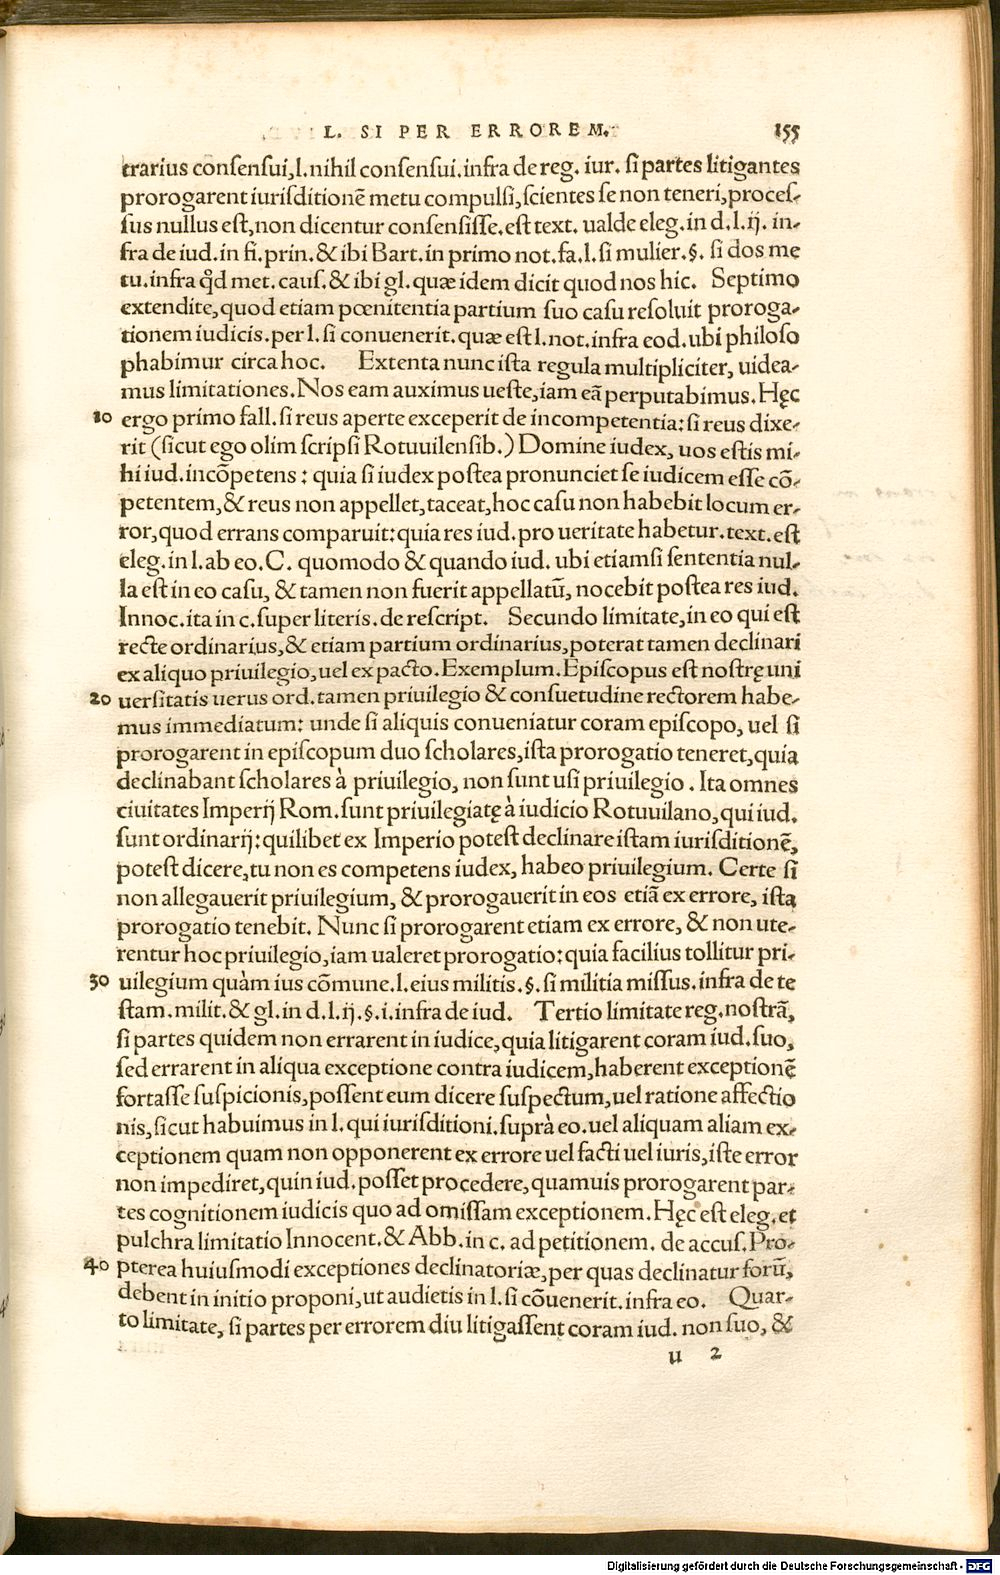 L. SI PER ERROREM. 155
trarius consensui, l. nihil consensui. infra de reg. iur. si partes litigantes
prorogarent iurisditionẽ metu compulsi, scientes se non teneri, proces-
sus nullus est, non dicentur consensisse. est text. ualde eleg. in d. l. ij. in-
fra de iud. in fi. prin. & ibi Bart. in primo not. fa. l. si mulier. §. si dos me
tu. infra q̃d met. caus. & ibi gl. quæ idem dicit quod nos hic. Septimo
extendite, quod etiam pœnitentia partium suo casu resoluit proroga-
tionem iudicis. per l. si conuenerit. quæ est l. not. infra eod. ubi philoso
phabimur circa hoc. Extenta nunc ista regula multipliciter, uidea-
mus limitationes. Nos eam auximus ueste, iam eã perputabimus. Hęc
10 ergo primo fall. si reus aperte exceperit de incompetentia: si reus dixe-
rit (sicut ego olim scripsi Rotuuilensib.) Domine iudex, uos estis mi-
hi iud. incõpetens: quia si iudex postea pronunciet se iudicem esse cõ-
petentem, & reus non appellet, taceat, hoc casu non habebit locum er-
ror, quod errans comparuit: quia res iud. pro ueritate habetur. text. est
eleg. in l. ab eo. C. quomodo & quando iud. ubi etiamsi sententia nul-
la est in eo casu, & tamen non fuerit appellatũ, nocebit postea res iud.
Innoc. ita in c. super literis. de rescript. Secundo limitate, in eo qui est
recte ordinarius, & etiam partium ordinarius, poterat tamen declinari
ex aliquo priuilegio, uel ex pacto. Exemplum. Episcopus est nostrę uni
20 uersitatis uerus ord. tamen priuilegio & consuetudine rectorem habe-
mus immediatum: unde si aliquis conueniatur coram episcopo, uel si
prorogarent in episcopum duo scholares, ista prorogatio teneret, quia
declinabant scholares à priuilegio, non sunt usi priuilegio. Ita omnes
ciuitates Imperij Rom. sunt priuilegiatę à iudicio Rotuuilano, qui iud.
sunt ordinarij: quilibet ex Imperio potest declinare istam iurisditionẽ,
potest dicere, tu non es competens iudex, habeo priuilegium. Certe si
non allegauerit priuilegium, & prorogauerit in eos etiã ex errore, ista
prorogatio tenebit. Nunc si prorogarent etiam ex errore, & non ute-
rentur hoc priuilegio, iam ualeret prorogatio: quia facilius tollitur pri-
30 uilegium quàm ius cõmune. l. eius militis. §. si militia missus. infra de te
stam. milit. & gl. in d. l. ij. §. i. infra de iud. Tertio limitate reg. nostrã,
si partes quidem non errarent in iudice, quia litigarent coram iud. suo,
sed errarent in aliqua exceptione contra iudicem, haberent exceptionẽ
fortasse suspicionis, possent eum dicere suspectum, uel ratione affectio
nis, sicut habuimus in l. qui iurisditioni. suprà eo. uel aliquam aliam ex-
ceptionem quam non opponerent ex errore uel facti uel iuris, iste error
non impediret, quin iud. posset procedere, quamuis prorogarent par-
tes cognitionem iudicis quo ad omissam exceptionem. Hęc est eleg. et
pulchra limitatio Innocent. & Abb. in c. ad petitionem. de accus. Pro-
40 pterea huiusmodi exceptiones declinatoriæ, per quas declinatur forũ,
debent in initio proponi, ut audietis in l. si cõuenerit. infra eo. Quar-
to limitate, si partes per errorem diu litigassent coram iud. non suo, &
u 2
Digitalisierung gefördert durch die Deutsche Forschungsgemeinschaft - DFG